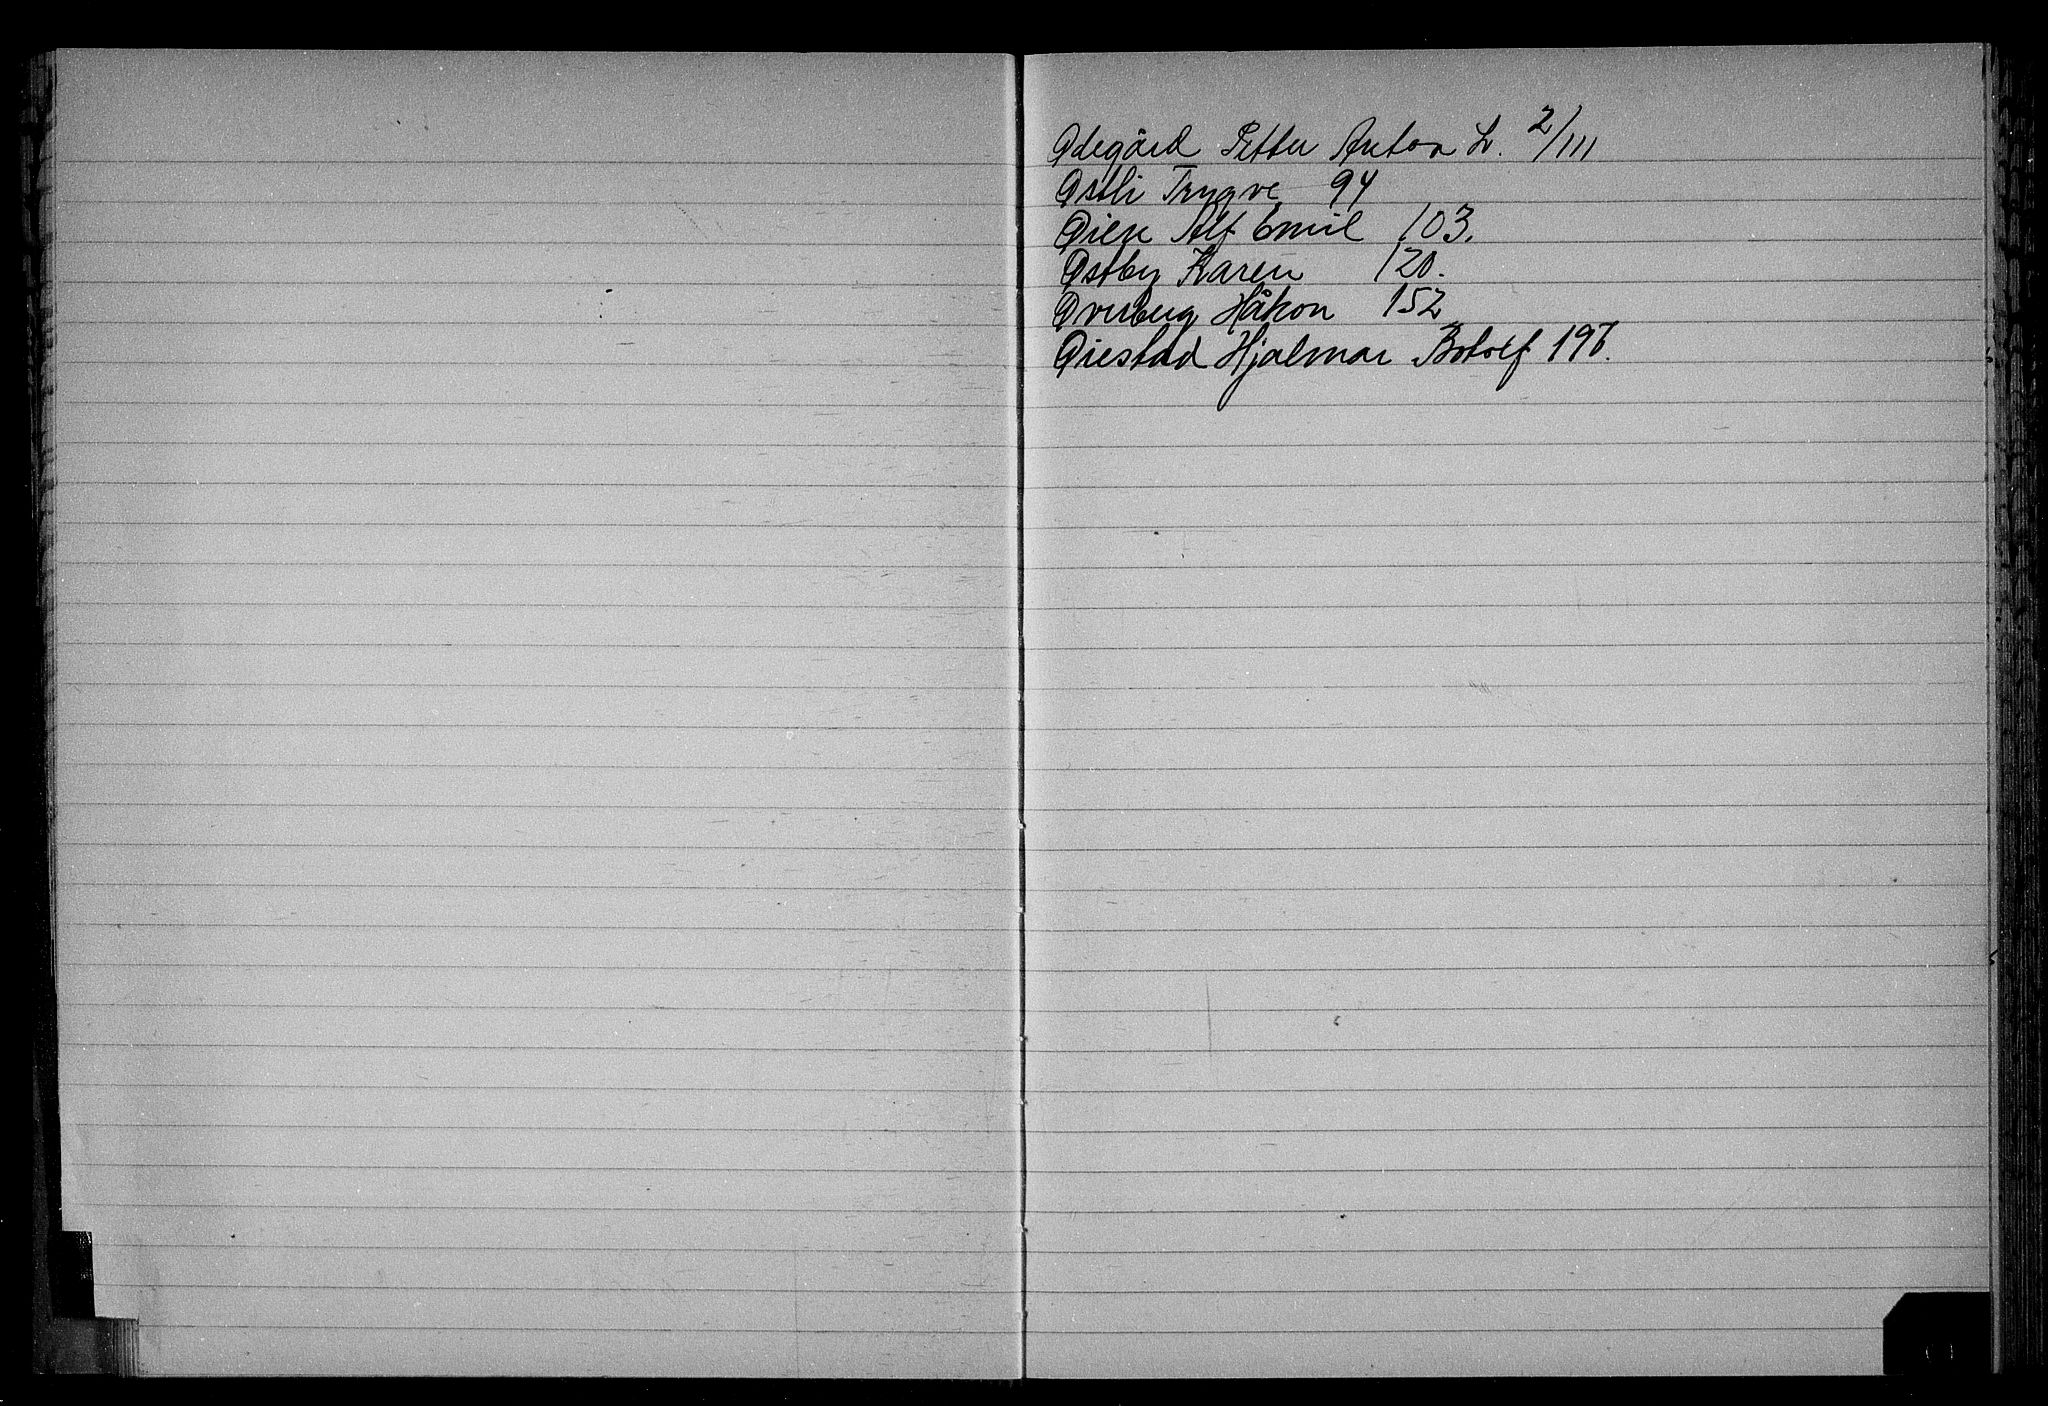 Ødegård Petter Anton L. 2/III
Østli Trygve 94
Øien Alf Emil 103.
Østby Karen 120.
Øverberg Håkon 152
Øiestad Hjalmar Botolf 197.